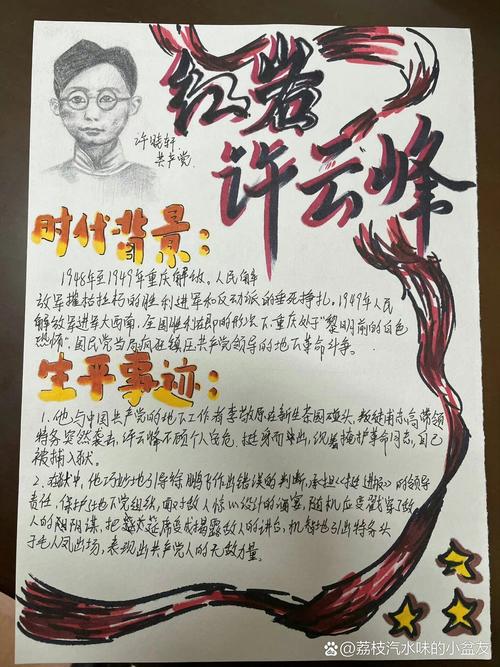 红岩
许云峰
许晓轩
共产党
时代背景：
1948年至1949年重庆解放。人民解
放军摧枯拉朽的胜利进军和反动派的垂死挣扎。1949年人民
解放军进军大西南，全国胜利在即的形势下，重庆处于"黎明前的白色
恐怖"。国民党当局疯狂镇压共产党领导的地下革命斗争。
生平事迹：
1.他与中国共产党的地下工作者李敬原在新生茶园碰头，叛徒甫志高带领
特务突然袭击，许云峰不顾个人安危，挺身而出，掩护革命同志，自己
被捕入狱。
2.在狱中，他巧妙地引导徐鹏飞作出错误的判断，承担《挺进报》的领导
责任，保护住地下党组织，面对敌人惊心设计的酒宴，随机应变戳穿了敌
人的阴谋，把宴席变成揭露敌人的讲台，机智地引出特务头
子毛人凤出场，表现出共产党人的无敌力量。
@荔枝汽水味的小盆友